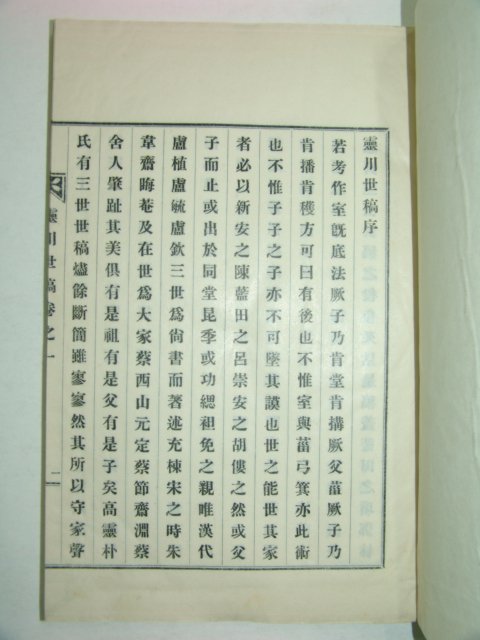 靈川世稿序
若考作室旣底法厥子乃肯堂肯搆厥父菑厥子乃
肯播肯穫方可曰有後也不惟室與菑弓箕亦此術
也不惟子子之子亦不可墜其謨也世之能世其家
者必以新安之陳藍田之呂崇安之胡僂之然或父
子而止或出於同堂昆季或功緦袒免之親唯漢代
盧植盧毓盧欽三世爲尙書而著述充棟宋之時朱
韋齋晦菴及在世爲大家蔡西山元定蔡節齋淵蔡
舍人肇趾其美俱有是祖有是父有是子矣高靈朴
氏有三世世稿燼餘斷簡雖寥寥然其所以守家聲
靈川世稿卷之一
二